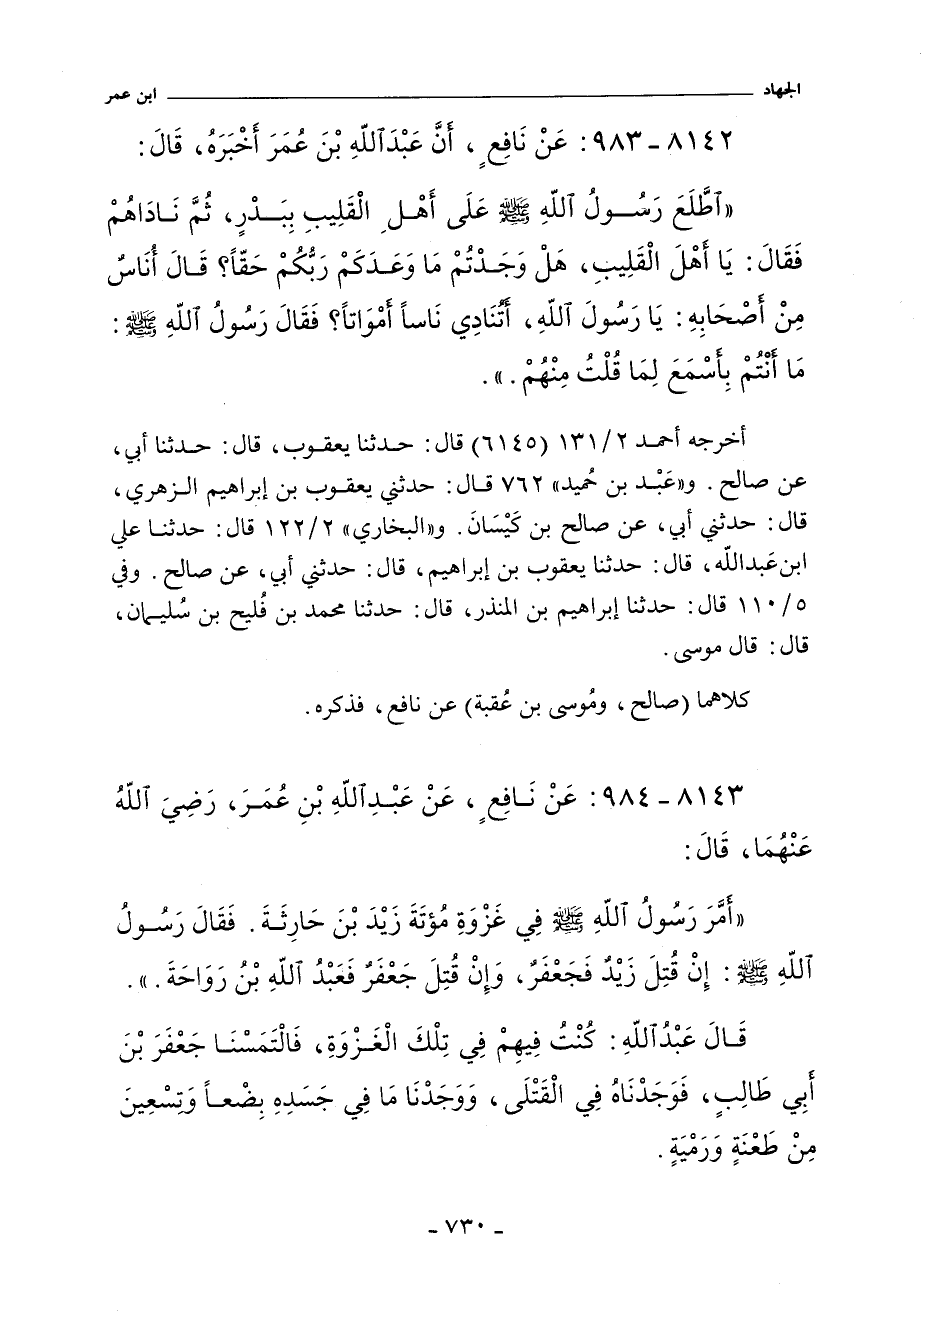 الجهاد ــــــــ ابن عمر
٨١٤٢ ـ ٩٨٣ : عَنْ نَافِعٍ ، أَنَّ عَبْدَاللّهِ بْنَ عُمَرَ أَخْبَرَهُ ، قَالَ :
«ٱطَّلَعَ رَسُولُ ٱللّهِ ﷺ عَلَى أَهْلِ الْقَلِيبِ بِبَدْرٍ ، ثُمَّ نَادَاهُمْ
فَقَالَ : يَا أَهْلَ الْقَلِيبِ ، هَلْ وَجَدْتُمْ مَا وَعَدَكُمْ رَبُّكُمْ حَقّاً؟ قَالَ أُنَاسٌ
مِنْ أَصْحَابِهِ : يَا رَسُولَ ٱللّهِ ، أَتُنَادِي نَاساً أَمْوَاتاً؟ فَقَالَ رَسُولُ ٱللّهِ ﷺ :
مَا أَنْتُمْ بِأَسْمَعَ لِمَا قُلْتُ مِنْهُمْ . » .
أخرجه أحمد ١٣١/٢ (٦١٤٥) قال : حدثنا يعقوب ، قال : حدثنا أبي ،
عن صالح . و«عَبْد بن حُميد» ٧٦٢ قال : حدثني يعقوب بن إبراهيم الزهري ،
قال : حدثني أبي ، عن صالح بن كَيْسَانَ . و«البخاري» ١٢٢/٢ قال : حدثنا علي
ابن عَبدالله ، قال : حدثنا يعقوب بن إبراهيم ، قال : حدثني أبي ، عن صالح . وفي
١١٠/٥ قال : حدثنا إبراهيم بن المنذر ، قال : حدثنا محمد بن فُليح بن سُليمان ،
قال : قال موسى .
كلاهما (صالح ، ومُوسى بن عُقبة) عن نافع ، فذكره .
٨١٤٣ ـ ٩٨٤ : عَنْ نَافِعٍ ، عَنْ عَبْدِٱللّهِ بْنِ عُمَرَ ، رَضِيَ ٱللّهُ
عَنْهُمَا ، قَالَ :
«أَمَّرَ رَسُولُ ٱللّهِ ﷺ فِي غَزْوَةِ مُؤتَةَ زَيْدَ بْنَ حَارِثَةَ . فَقَالَ رَسُولُ
ٱللّهِ ﷺ : إِنْ قُتِلَ زَيْدٌ فَجَعْفَرٌ ، وَإِنْ قُتِلَ جَعْفَرٌ فَعَبْدُ اللّهِ بْنُ رَوَاحَةَ . » .
قَالَ عَبْدُٱللّهِ : كُنْتُ فِيهِمْ فِي تِلْكَ الْغَزْوَةِ ، فَالْتَمَسْنَا جَعْفَرَ بْنَ
أَبِي طَالِبٍ ، فَوَجَدْنَاهُ فِي الْقَتْلَى ، وَوَجَدْنَا مَا فِي جَسَدِهِ بِضْعاً وَتِسْعِينَ
مِنْ طَعْنَةٍ وَرَمْيَةٍ .
ـ ٧٣٠ ـ